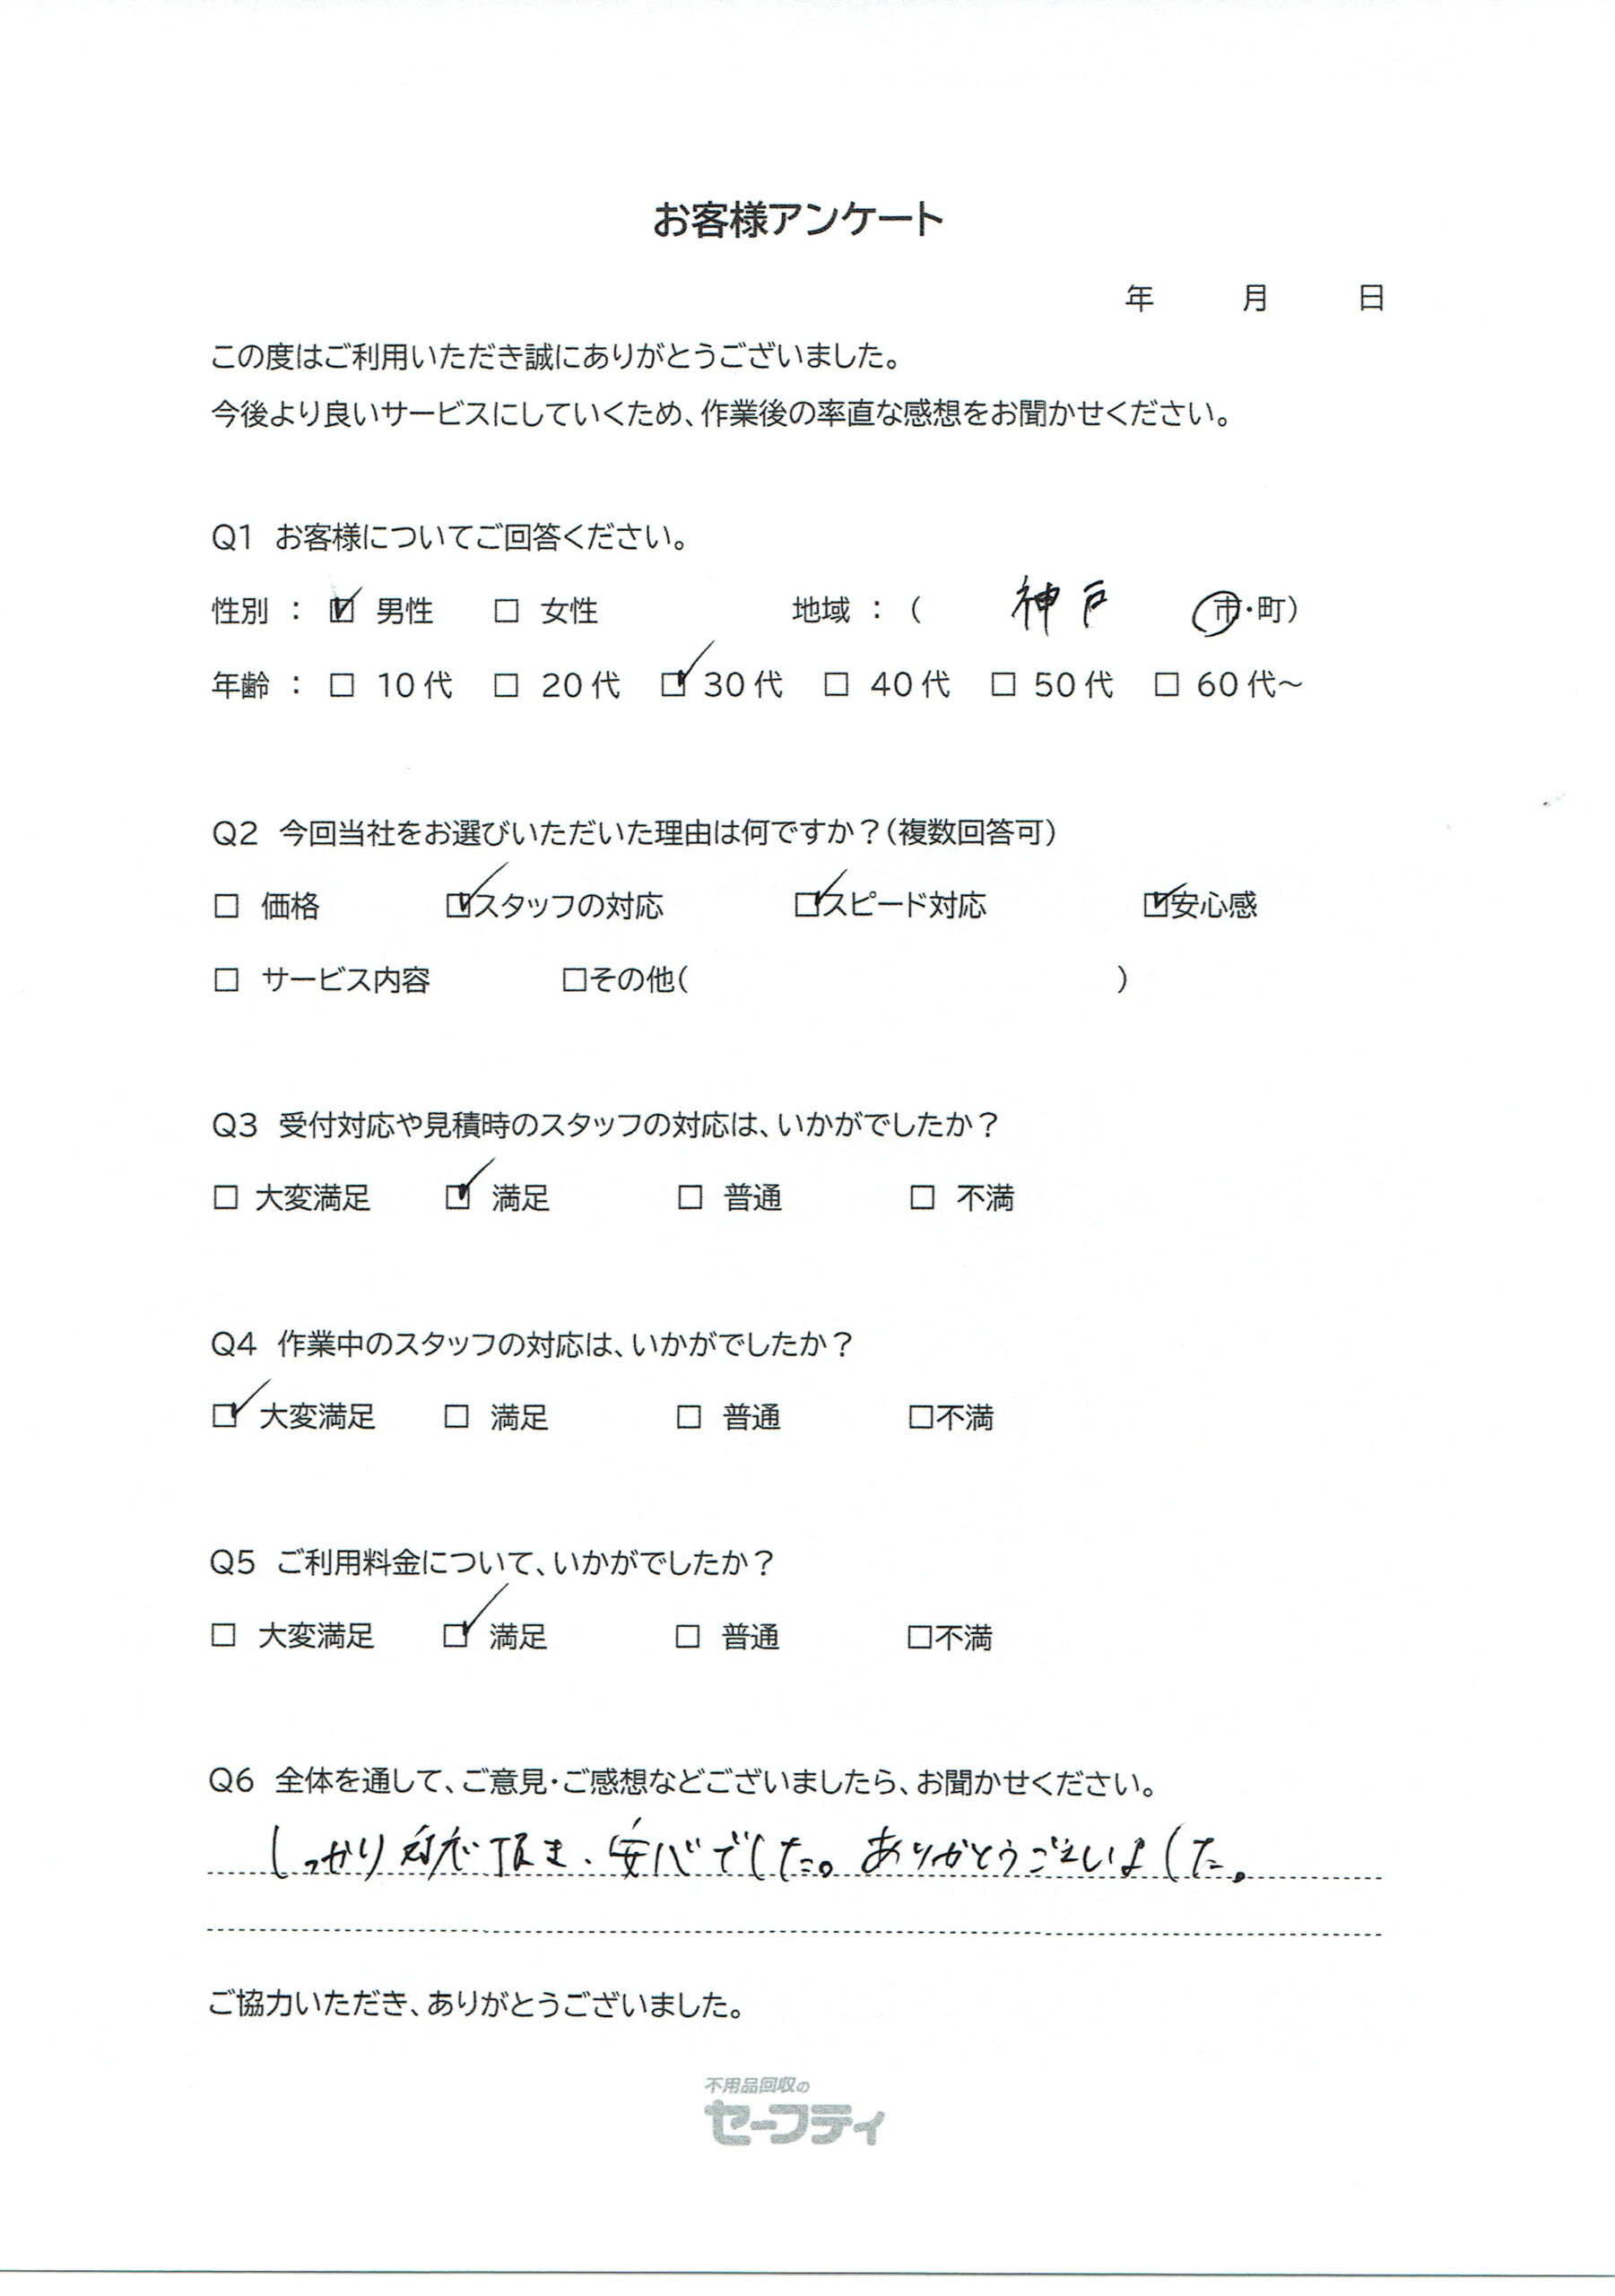 お客様アンケート
年 月 日
この度はご利用いただき誠にありがとうございました。
今後より良いサービスにしていくため、作業後の率直な感想をお聞かせください。
Q1 お客様についてご回答ください。
性別 : ☑ 男性 □ 女性 地域 : ( 神戸 市・町)
年齢 : □ 10代 □ 20代 ☑ 30代 □ 40代 □ 50代 □ 60代～
Q2 今回当社をお選びいただいた理由は何ですか?(複数回答可)
□ 価格 ☑スタッフの対応 ☑スピード対応 ☑安心感
□ サービス内容 □その他( )
Q3 受付対応や見積時のスタッフの対応は、いかがでしたか?
□ 大変満足 ☑ 満足 □ 普通 □ 不満
Q4 作業中のスタッフの対応は、いかがでしたか?
☑ 大変満足 □ 満足 □ 普通 □不満
Q5 ご利用料金について、いかがでしたか?
□ 大変満足 ☑ 満足 □ 普通 □不満
Q6 全体を通して、ご意見・ご感想などございましたら、お聞かせください。
しっかり対応頂き、安心でした。ありがとうございました。
ご協力いただき、ありがとうございました。
不用品回収の
セーフティ